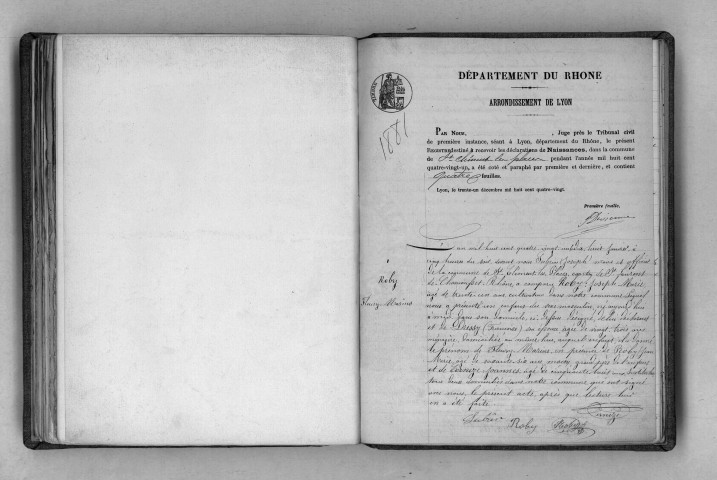 DÉPARTEMENT DU RHONE
ARRONDISSEMENT DE LYON
1881
PAR NOUS, , Juge près le Tribunal civil
de première instance, séant à Lyon, département du Rhône, le présent
REGISTRE destiné à recevoir les déclarations de Naissances, dans la commune
de St Clément les places pendant l'année mil huit cent
quatre-vingt-un, a été coté et paraphé par première et dernière, et contient
quatre feuilles.
Lyon, le trente-un décembre mil huit cent quatre-vingt.
Première feuille,
L'an mil huit cent quatre vingt un le huit janvier à
cinq heures du soir, devant nous Joseph maire et officier
de la commune de St Clément les Places, canton de St Laurent
de Chamousset Rhône, a comparu Roby Joseph Marie
Roby
Fleury Marius
agé de trente cultivateur dans notre commune lequel
nous a présenté un enfant du sexe masculin, né aujourd'hui
à midi dans son domicile, de lui déclarant
et de (Francoise) son épouse agée de vingt trois ans
ménagère, domiciliée au même lieu, auquel enfant il a donné
le prénom de Fleury Marius, en présence de Roby Jean
Marie agé de soixante six ans
et de Joannes, agé de cinquante
tous deux domiciliés dans notre commune qui ont signé
avec nous le présent acte, après que lecture leur
en a été faite.
Roby